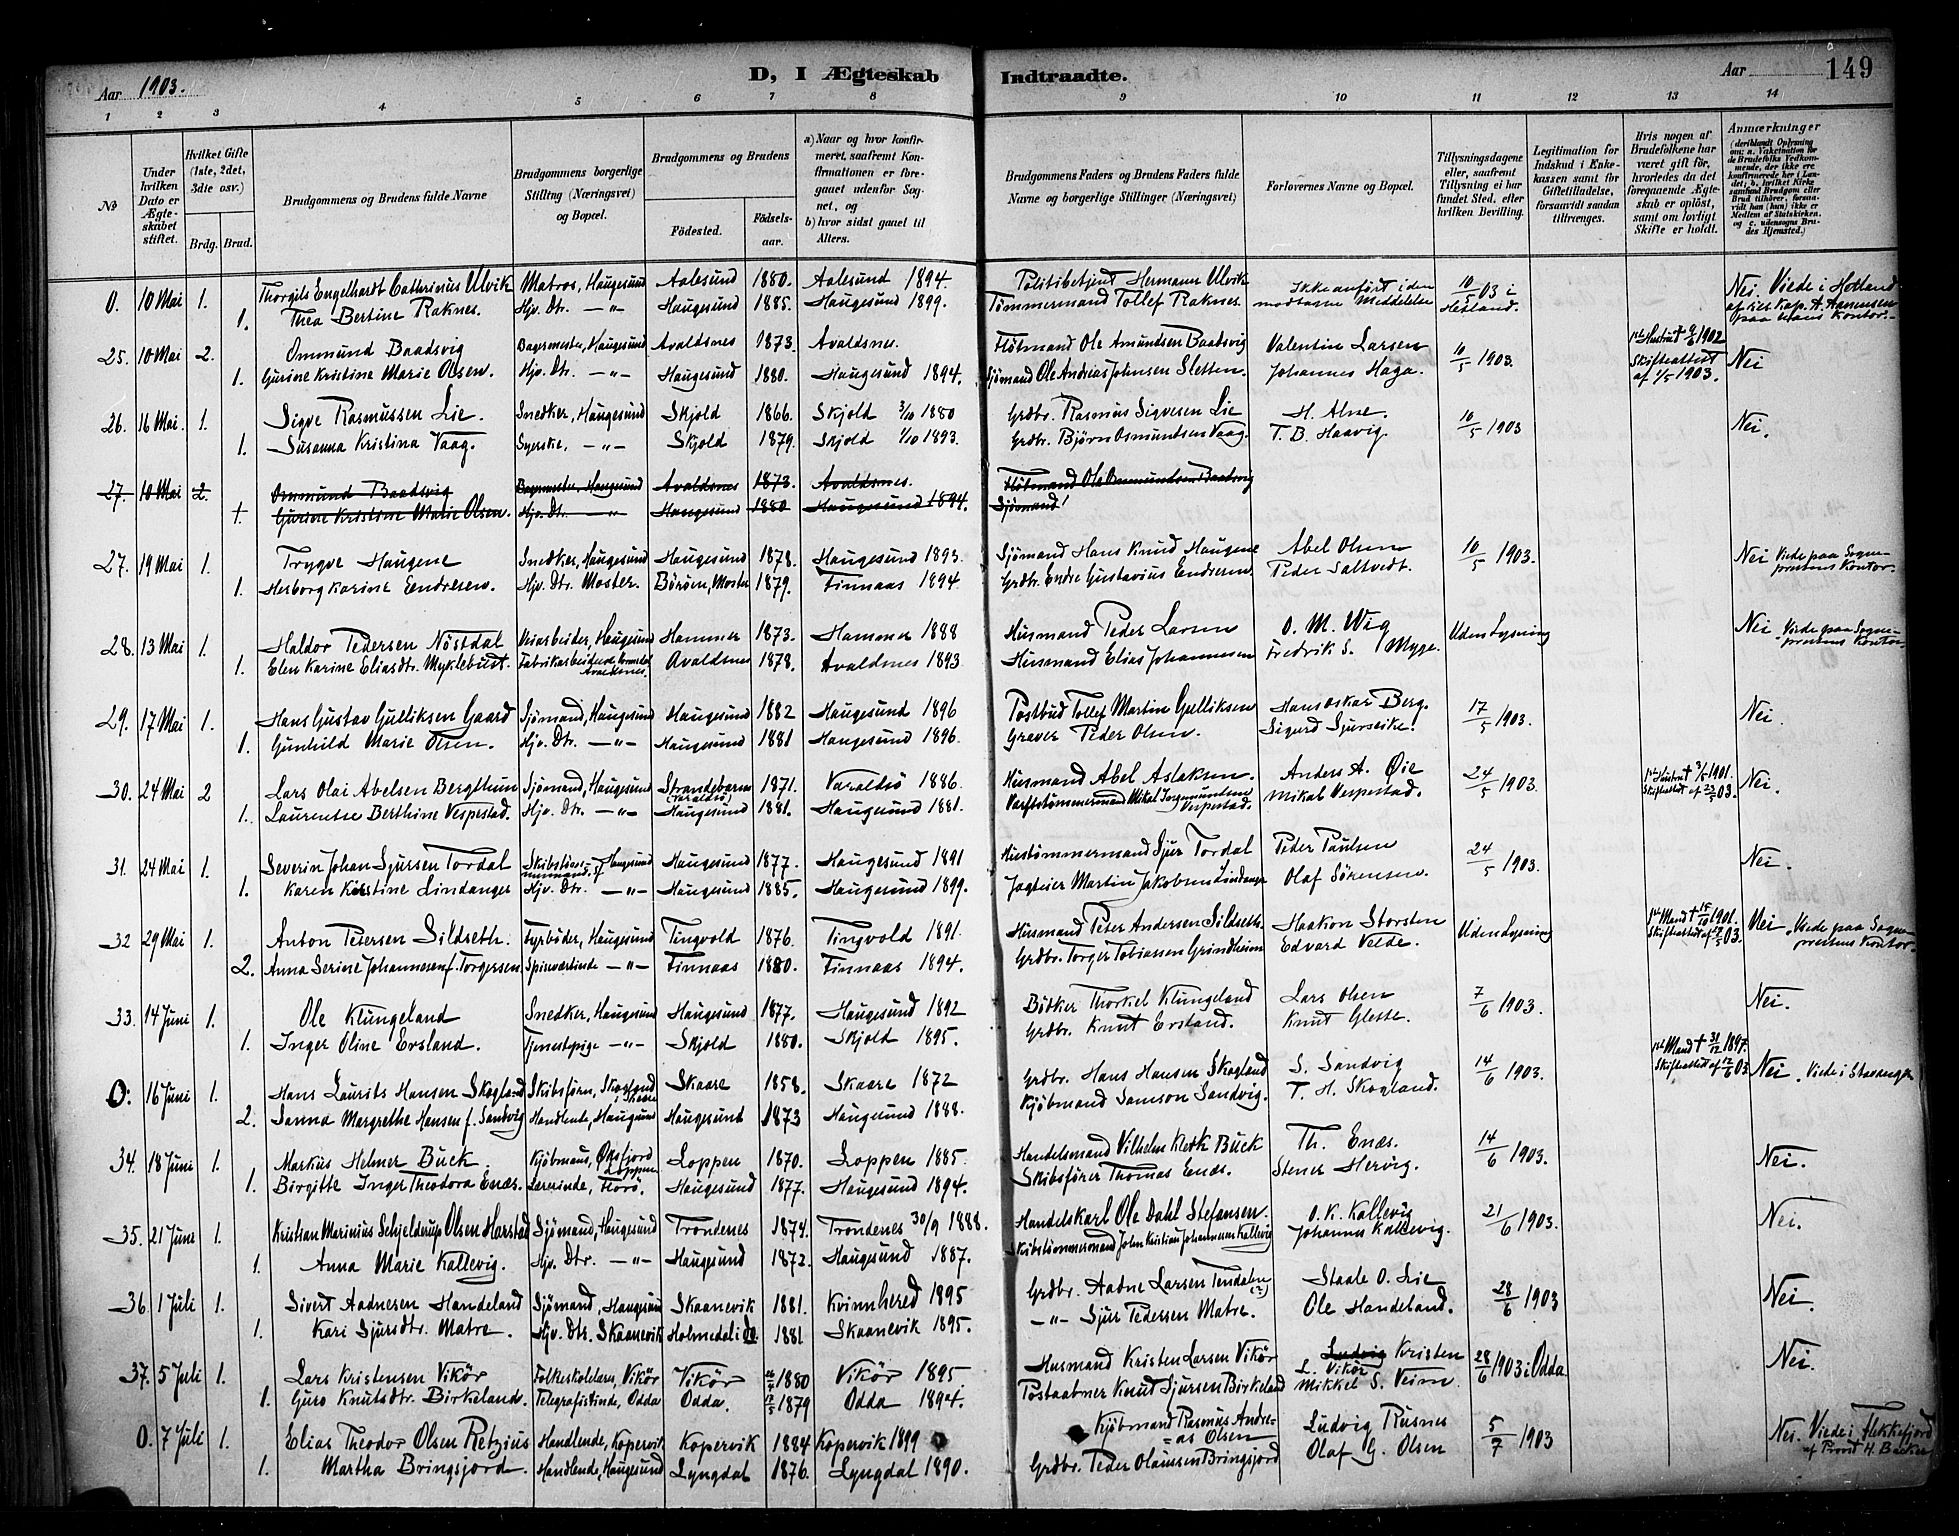 Aar 1903.
D, I Ægteskab Indtraadte.
Aar
149
1 2 3 4 5 6 7 8 9 10 11 12 13 14
No
Under hvilken Dato er Ægteskabet stiftet.
Hvilket Gifte (1ste, 2det, 3die osv.)
Brdg. Brud.
Brudgommens og Brudens fulde Navne
Brudgommens borgerlige Stilling (Næringsvei) og Bopæl.
Brudgommens og Brudens
Födested. Födselsaar.
a) Naar og hvor konfirmeret, saafremt Konfirmationen er foregaaet udenfor Sognet, og b) hvor sidst gaaet til Alters.
Brudgommens Faders og Brudens Faders fulde Navne og borgerlige Stillinger (Næringsvei)
Forlovernes Navne og Bopæl.
Tillysningsdagene eller, saafremt Tillysning ei har fundet Sted, efter hvilken Bevilling.
Legitimation for Indskud i Enkekassen samt for Giftetilladelse, forsaavidt saadan tiltrænges.
Hvis nogen af Brudefolkene har været gift för, hvorledes da det foregaaende Ægteskab er oplöst, samt om lovligt Skifte er holdt.
Anmærkninger (deriblandt Oplysning om: a. Vakcination for de Brudefolks Vedkommende, der ikke ere konfirmerede her i Landet; b. hvilket Kirkesamfund Brudgom eller Brud tilhörer, forsaavidt han (hun) ikke er Medlem af Statskirken, og c. udensogns Brudes Hjemsted.)
0. 10 Mai 1. Thorgils Engelhardt Cathrinus Ulvik Matros, Haugesund Aalesund 1880. Aalesund 1894. Politibetjent Hermann Ulvik Ikke anfört i den 10/5 03 i Nei. Viede i Hetland
1. Thea Bertine Raknes. Hjv. Dtr. —"— Haugesund 1885. Haugesund 1899. Tömmermand Tollef Raknes. modtagne Meddelelse Hetland. af res. Kap. A. Aanensen paa hans Kontor.
25. 10 Mai 2. Ommund Baadsvig Bagermester, Haugesund Avaldsnes 1873. Avaldsnes. Flötmand Ole Amundsen Baadsvig Valentin Larsen 10/5 1903. 1ste Hustru † 9/6 1902 Nei
1. Gurine Kristine Marie Olsen. Hjv. Dtr. —"— Haugesund 1880. Haugesund 1894. Sjömand Ole Andreas Johnsen Sletten. Johannes Haga. Skifteattest af 1/5 1903.
26. 16 Mai. 1. Sigve Rasmussen Lie. Snedker, Haugesund Skjold 1866. Skjold 3/10 1880 Grdbr. Rasmus Sigvesen Lie H. Alne. 10/5 1903 Nei.
1. Susanna Kristina Vaag. Syerske, —"— Skjold 1879. Skjold 1/10 1893. Grdbr. Björn Osmundsen Vaag. T. B. Haavig.
27. 10 Mai 2. Ommund Baadsvig Bagermester, Haugesund Avaldsnes 1873. Avaldsnes. Flötmand Ole Ommundsen Baadsvig
1. Gurine Kristine Marie Olsen. Hjv. Dtr. —"— Haugesund 1880 Haugesund 1894. Sjömand
27. 19 Mai 1. Trygve Haugene Snedker, Haugesund Haugesund 1878. Haugesund 1893. Sjömand Hans Knud Haugene Abel Olsen 10/5 1903. Nei Viede paa Sogneprestens Kontor.
1. Herborg Karine Endresen. Hjv. Dtr. Moster. Böröen, Moster 1879. Finnaas 1894. Grdbr. Endre Gustavius Endresen. Peder Saltvedt.
28. 13 Mai 1. Haldor Pedersen Nöstdal Veiarbeider, Haugesund Hammer 1873. Hammer 1888 Husmand Peder Larsen O. M. Wig Uden Lysning Nei. Viede paa Sogneprestens Kontor
1. Elen Karine Eliasdtr. Myklebust. Fabrikarbeiderske, Avaldsnes. Avaldsnes 1878. Avaldsnes 1893. Husmand Elias Johannesen Fredrik S. Myge.
29. 17 Mai 1. Hans Gustav Gulliksen Gaard Sjömand, Haugesund Haugesund 1882 Haugesund 1896 Postbud Tollef Martin Gulliksen Hans Oskar Berg. 17/5 1903. Nei.
1. Gunhild Marie Olsen. Hjv. Dtr. —"— Haugesund 1881 Haugesund 1896. Graver Peder Olsen. Sigurd Sjurseike.
30. 24 Mai 2 Lars Olai Abelsen Bergthun Sjömand, Haugesund Strandebarm (Varaldsö) 1871. Varaldsö 1886. Husmand Abel Aslaksen. Anders A. Öie 24/5 1903. 1ste Hustru † 3/5 1901. Skifteattest af 23/5 03. Nei.
1. Laurentse Berthine Vespestad. Hjv. Dtr. —"— Haugesund 1881. Haugesund 1881. Værftstömmermand Mikal Ingemundsen Vespestad. Mikal Vespestad.
31. 24 Mai 1. Severin Johan Sjursen Tordal Skibstömmermand, Haugesund Haugesund 1877. Haugesund 1891 Hustömmermand Sjur Tordal Peder Paulsen 24/5 1903. Nei.
1. Karen Kirstine Lindanger Hjv. Dtr. —"— Haugesund 1885. Haugesund 1899. Jagteier Martin Jakobsen Lindanger Olaf Sörensen.
32 29 Mai 1. Anton Petersen Sildseth. Fyrböder, Haugesund Tingvold 1876. Tingvold 1891. Husmand Peter Andersen Sildseth. Haakon Storsten Uden Lysning 1ste Mand † 15/10 1901. Skifteattest af 7/5 03. Nei. Viede paa Sogneprestens Kontor.
2. Anna Serine Johannesen f. Torgersen Spinværinde —"— Finnaas 1880. Finnaas 1894. Grdbr. Torger Tobiassen Grindheim Edvard Velde.
33. 14 Juni 1. Ole Klungeland Snedker, Haugesund Haugesund 1877. Haugesund 1892 Bödker Thorkel Klungeland Lars Olsen 7/6 1903. Nei.
1. Inger Oline Ersland. Tjenestpige —"— Skjold 1880. Skjold 1895. Grdbr. Knut Ersland. Knut Glette.
0. 16 Juni 1. Hans Laurits Hansen Skogland Skibsförer, Skogland Skaare Skaare 1858. Skaare 1872 Grdbr. Hans Hansen Skogland S. Sandvig 14/6 1903. 1ste Mand † 31/12 1897. Skifteattest af 12/6 03 Nei. Viede i Stavanger
2. Sanna Margrethe Hansen f. Sandvig Handlende, Haugesund Haugesund 1873 Haugesund 1888. Kjöbmand Samson Sandvig. T. H. Skogland.
34. 18 Juni 1. Markus Helmer Buck. Kjöbmand, Öksfjord Loppen Loppen 1870. Loppen 1885. Handelsmand Vilhelm Kerk Buck Th. Enæs. 14/6 1903. Nei.
1. Birgitte Inger Theodora Enæs. Lærerinde, Florö. Haugesund 1877. Haugesund 1894. Skibsförer Thomas Enæs. Stener Hervig.
35. 21 Juni 1. Kristian Marinius Schjeldrup Olsen Harstad Sjömand, Haugesund Trondenes 1874. Trondenes 30/9 1888. Handelskarl Ole Dahl Stefansen. O. K. Kallevig 21/6 1903. Nei.
1. Anna Marie Kallevig. Hjv. Dtr. —"— Haugesund 1872. Haugesund 1887. Skibstömmermand John Kristian Johannesen Kallevig Johannes Kallevig.
36. 1 Juli 1. Sivert Aadnesen Handeland Sjömand, Haugesund Skaanevik 1881. Kvinnhered 1895 Grdbr. Aadne Larsen Tendalen (?) Staale O. Lie 28/6 1903 Nei.
1. Kari Sjursdtr. Matre. Hjv. Dtr. Skaanevik Holmedal i do. 1881 Skaanevik 1895. —"— Sjur Pedersen Matre. Ole Handeland.
37. 5 Juli 1. Lars Kristensen Vikör Folkeskolelærer, Vikör Vikör 1880 Vikör 1895. Husmand Kristen Larsen Vikör Ludvig Kristen L. Vikör 28/6 1903 i Odda Nei.
1. Guro Knutsdtr. Birkeland. Telegrafistinde, Odda Odda. 1879 Odda 1894. Postaabner Knut Sjursen Birkeland Mikkel S. Veim.
0. 7 Juli 1. Elias Theodor Olsen Retzius Handlende, Kopervik Kopervik 1884 Kopervik 1899 Kjöbmand Rasmus Andreas Olsen Ludvig Rusnes 5/7 1903 Nei. Viede i Flekkefjord af Provst H. Backer
1. Martha Bringsjord. Handlende, Haugesund Lyngdal 1876. Lyngdal 1890. Grdbr. Peder Olaussen Bringsjord Olaf G. Olsen